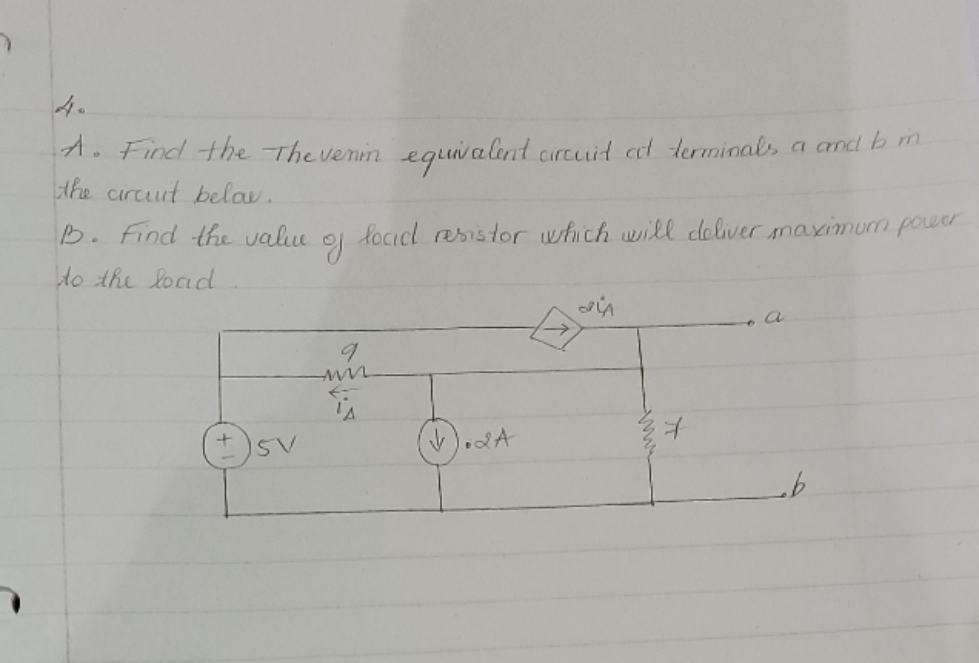 4.
A. Find the Thevenin equivalent circuit at terminals a and b in
the circuit below.
B. Find the value of load resistor which will deliver maximum power
to the load.
2iA
a
9
iA
+
-
5V
.2A
7
b